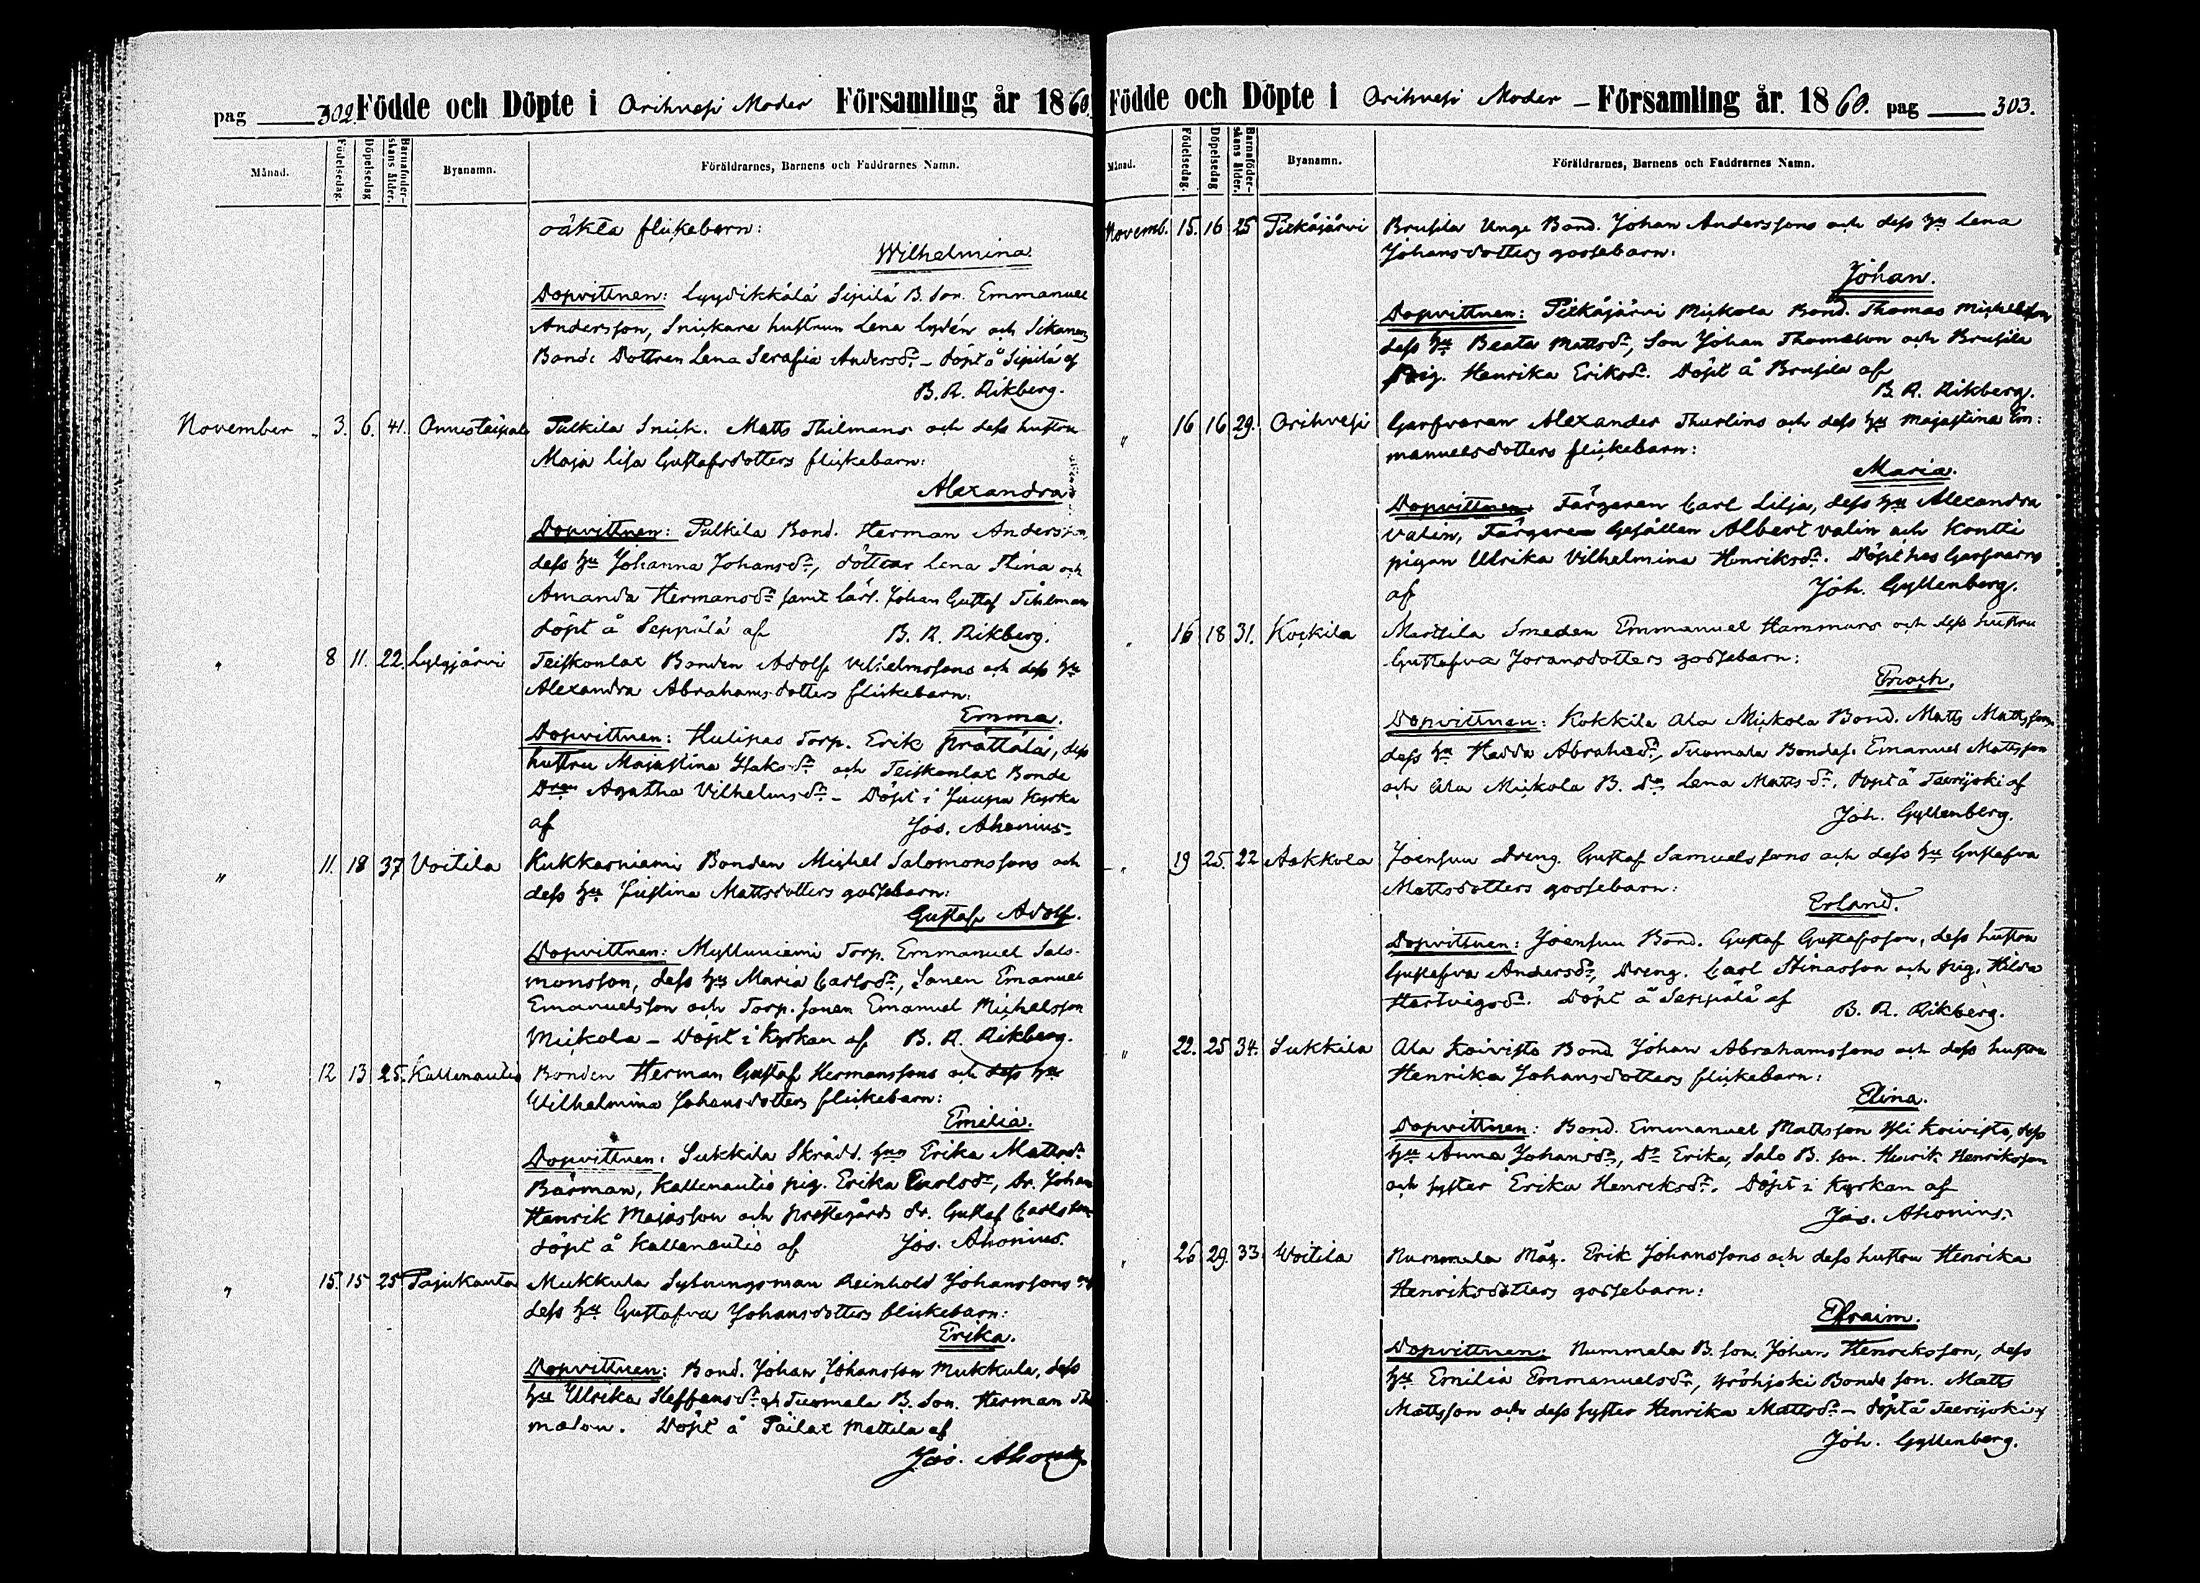 pag 302. Födde och Döpte i Orihvesi Moder Församling år 1860.
Månad. Födelsedag. Döpelsedag Barnaföderskans ålder. Byanamn. Föräldrarnes, Barnens och Faddrarnes Namn.
oäkta flickebarn:
Wilhelmina
Dopvittnen: Lyydikkälä Sipilä B. Son. Emmanuel
Andersson, Snickare hustrun Lena Lydén och Sikanen
Bonde Dottren Lena Serafia Andersdr – Döpt å Sipilä af
B. R. Rikberg.
November „ 3. 6. 41. Onnistaipale Pulkila Snick. Matts Thilmans och dess hustru
Maja Lisa Gustafsdotters flickebarn:
Alexandra
Dopvittnen: Pulkila Bond. Herman Andersson,
dess hu Johanna Johansdr, döttrar Lena Stina och
Amanda Hermansdr samt lärl. Johan Gustaf Tihlman
Döpt å Seppälä af B. R. Rikberg.
„ 8 11. 22. Lylyjärvi Teiskonlax Bonden Adolf Vilhelmssons och dess hu
Alexandra Abrahamsdotters flickebarn:
Emma.
Dopvittnen: Hulipas Torp. Erik Prättälä, dess
hustru Majastina Isaksdr och Teiskonlax Bonde
Dren Agatha Vilhelmsdr – Döpt i Juupa Kyrka
af Jos. Ahonius.
„ 11. 18 37 Voitila Kukkarniemi Bonden Michel Salomonssons och
dess hu Justina Mattsdotters gossebarn:
Gustaf Adolf.
Dopvittnen: Mylluniemi Torp. Emmanuel Salo-
monsson, dess hu Maria Carlsdr, Sonen Emanuel
Emanuelsson och Torp. sonen Emanuel Michelsson
Mickola – Döpt i Kyrkan af B. R. Rikberg.
„ 12 13 25. Kallenautio Bonden Herman Gustaf Hermanssons och dess hu
Wilhelmina Johansdotters flickebarn:
Emilia.
Dopvittnen: Sukkila Skrädd. hun Erika Mattsdr
Bärman, Kallenautio pig. Erika Carlsdr, Dr. Johan
Henrik Majasson och prestegårds dr. Gustaf Carlsson
Döpt å Kallenautio af Jos. Ahonius.
„ 15. 15 25 Pajukanta Mukkula Sytningsman Reinhold Johanssons och
dess hu Gustafva Johansdotters flickebarn:
Erika.
Dopvittnen: Bond. Johan Johansson Mukkula, dess
hu Ulrika Steffansdr och Tuomala B. Son. Herman Tho
masson. Döpt å Päilax Mattila af
Jos. Ahonius
Födde och Döpte i Orihvesi Moder – Församling år 1860. pag 303.
Månad. Födelsedag. Döpelsedag Barnaföderskans ålder. Byanamn. Föräldrarnes, Barnens och Faddrarnes Namn.
Novemb. 15. 16 25 Pitkäjärvi Brusila Unge Bond. Johan Anderssons och dess hu Lena
Johansdotters gossebarn:
Johan.
Dopvittnen: Pitkäjärvi Mickola Bond. Thomas Michelsson,
dess hu Beata Mattsdr, Son Johan Thomasson och Brusila
Pig. Henrika Eriksdr. Döpt å Brusila af
B. R. Rikberg.
„ 16 16 29. Orihvesi Garfvaren Alexander Thurlins och dess hu Majastina Em:
manuelsdotters flickebarn:
Maria.
Dopvittnen: Färgaren Carl Lilja, dess hu Alexandra
Valin, Färgare Gesällen Albert Valin och Kontti
pigan Ulrika Vilhelmina Henriksdr. Döpt hos Garfvarns
af Joh. Gyllenberg.
„ 16 18 31. Kockila Marttila Smeden Emmanuel Hammars och dess hustru
Gustafva Joransdotters gossebarn:
Enoch.
Dopvittnen: Kokkila Ala Mickola Bond. Matts Mattsson,
dess hu Hedda Abrahsdr, Tuomala Bondes. Emanuel Mattsson
och Ala Mickola B. Dr Lena Mattsdr. Döpt å Taerijoki af
Joh. Gyllenberg.
„ 19 25. 22 Aakkola Joensuu Dreng. Gustaf Samuelssons och dess hu Gustafva
Mattsdotters gossebarn:
Erland.
Dopvittnen: Joensuu Bond. Gustaf Gustafsson, dess hustru
Gustafva Andersdr, Dreng. Carl Stinasson och Pig. Hilda
Hartvigsdr. Döpt å Seppälä af B. R. Rikberg.
„ 22. 25 34. Sukkila Ala Koivisto Bond Johan Abrahamssons och dess hustru
Henrika Johansdotters flickebarn:
Elina.
Dopvittnen: Bond. Emmanuel Mattsson Yli Koivisto, dess
hu Anna Johansdr, Dr Erika, Salo B. son. Henrik Henriksson
och syster Erika Henriksdr. Döpt i Kyrkan af
Jos. Ahonius.
„ 26 29. 33. Woitila Nummela Måg. Erik Johanssons och dess hustru Henrika
Henriksdotters gossebarn:
Efraim.
Dopvittnen: Nummela B. son. Johan Henriksson, dess
hu Emilia Emmanuelsdr, Yröhjoki Bonde son. Matts
Mattsson och dess syster Henrika Mattsdr – Döpt å Taerijoki af
Joh. Gyllenberg.